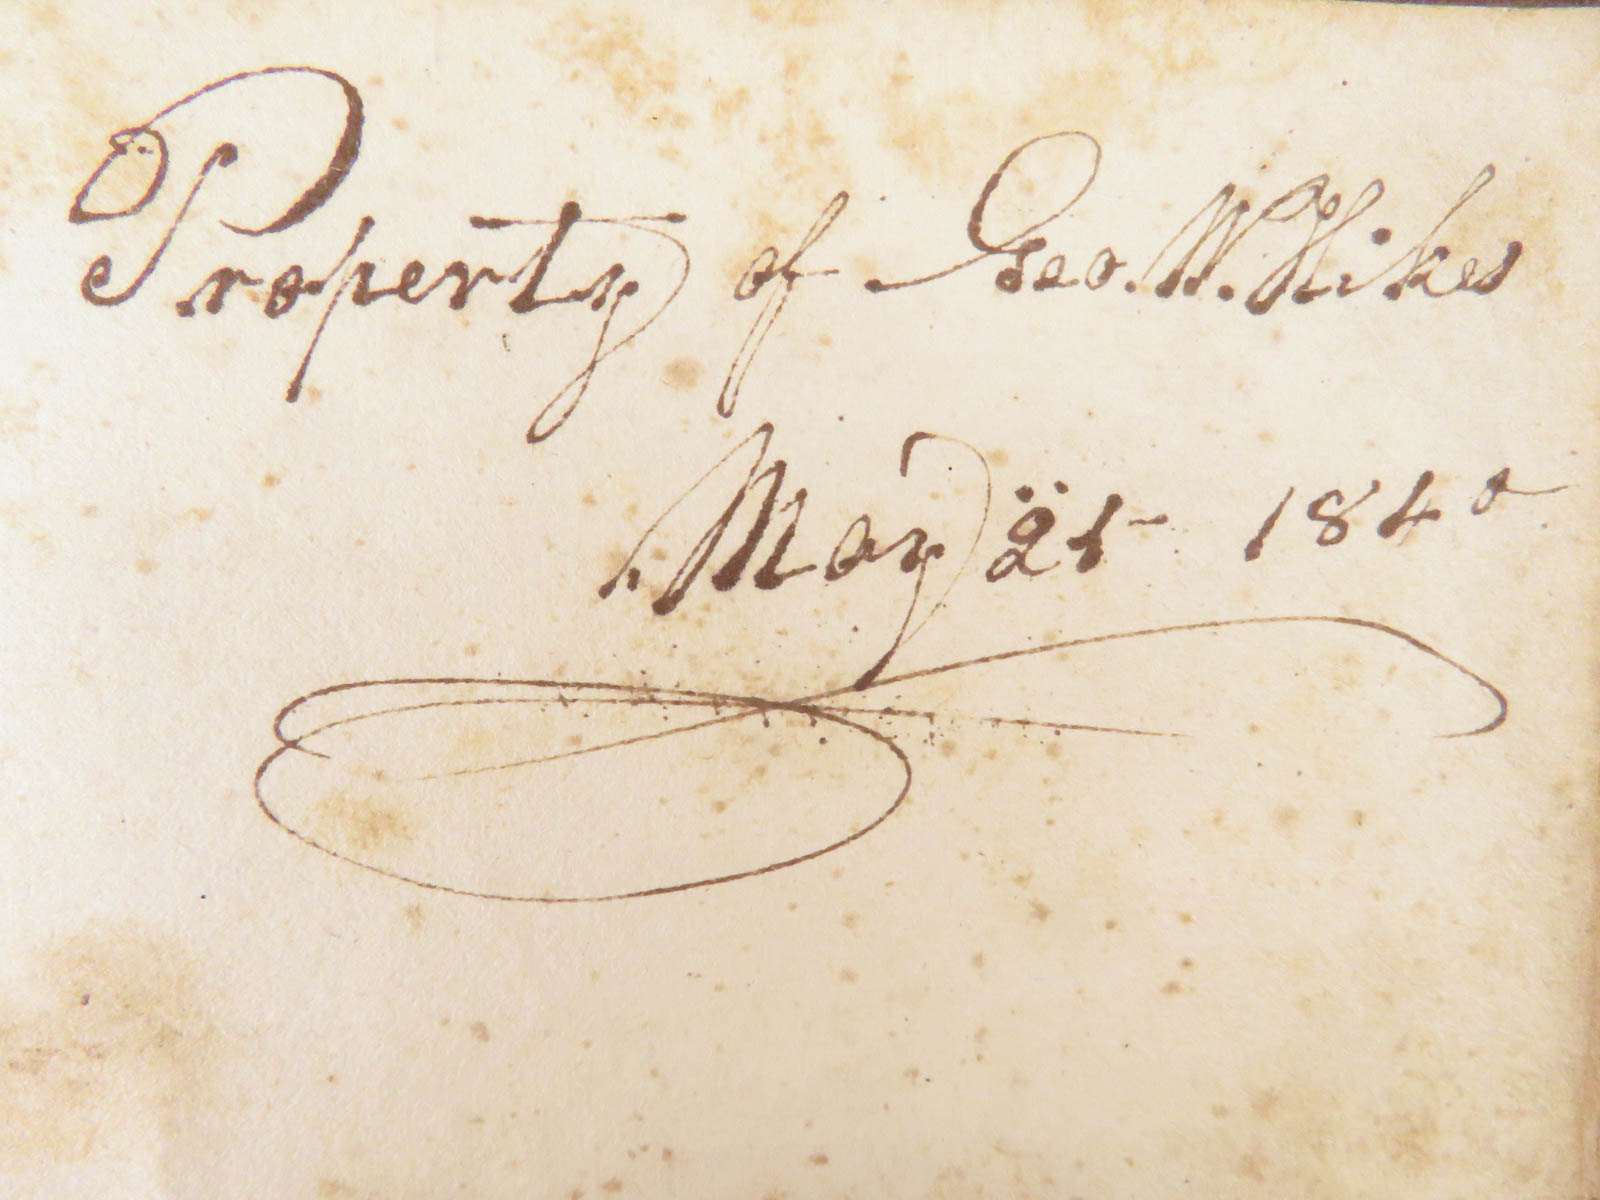 Property of Geo. W. Hikes
May 21 1840